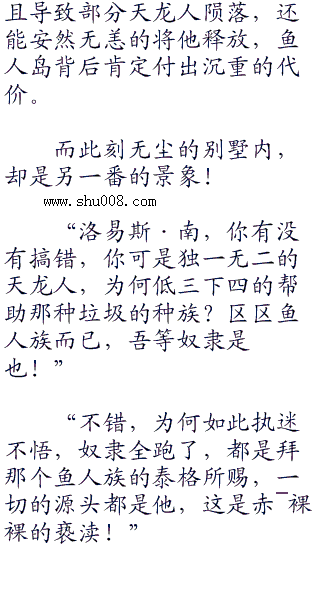 且导致部分天龙人陨落，还
能安然无恙的将他释放，鱼
人岛背后肯定付出沉重的代
价。
而此刻无尘的别墅内，
却是另一番的景象！
www.shu008.com
“洛易斯·南，你有没
有搞错，你可是独一无二的
天龙人，为何低三下四的帮
助那种垃圾的种族？区区鱼
人族而已，吾等奴隶是
也！”
“不错，为何如此执迷
不悟，奴隶全跑了，都是拜
那个鱼人族的泰格所赐，一
切的源头都是他，这是赤¯裸
裸的亵渎！”